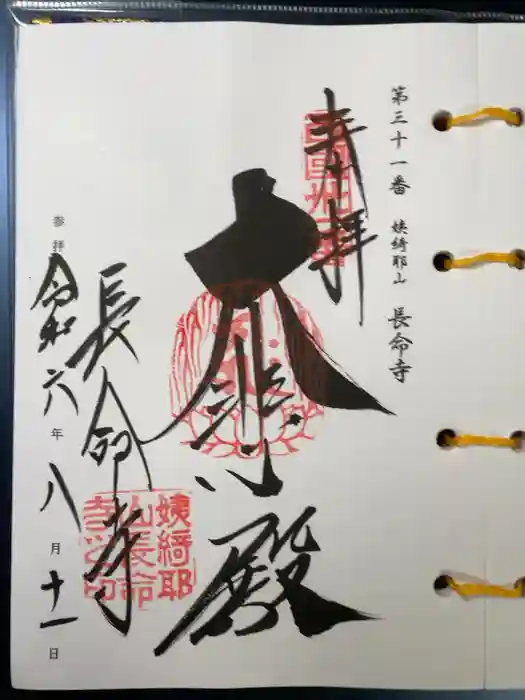 第三十一番 姨綺耶山 長命寺
奉拝
大悲殿
長命寺
参拝 令和六年八月十一日
姨綺耶
山長命
寺之印